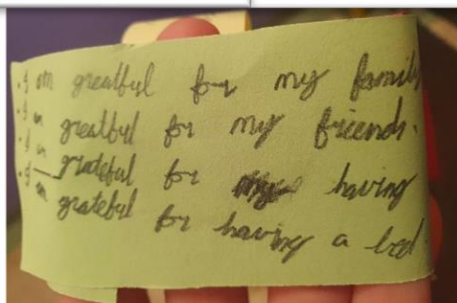 . I am greatful for my family
. I am greatful for my friends.
. I am grateful for having
. I am grateful for having a bed